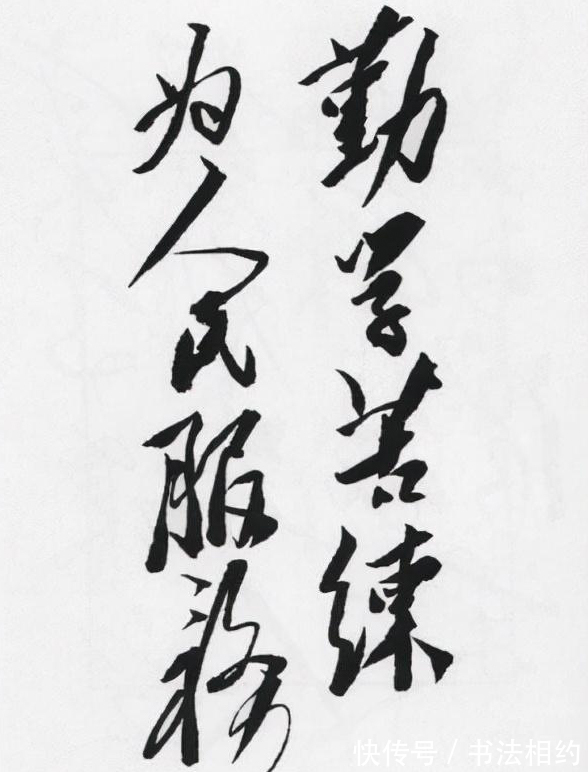 勤学苦练
为人民服务
快传号 / 书法相约